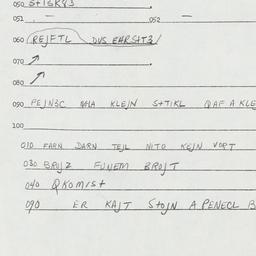 050 S+ISK83
051 — 052 —
060 REJFTL DUS EHRSHT3/
070
080
090 PEJN3C MHA KLEJN S+TIKL QAF A KLE
100
010 FARN DARN TEJL NITO KEJN VORT
030 BRIJZ FUNEM BROJT
040 QKOMIST
090 ER KAJT STOJN A PENECL B